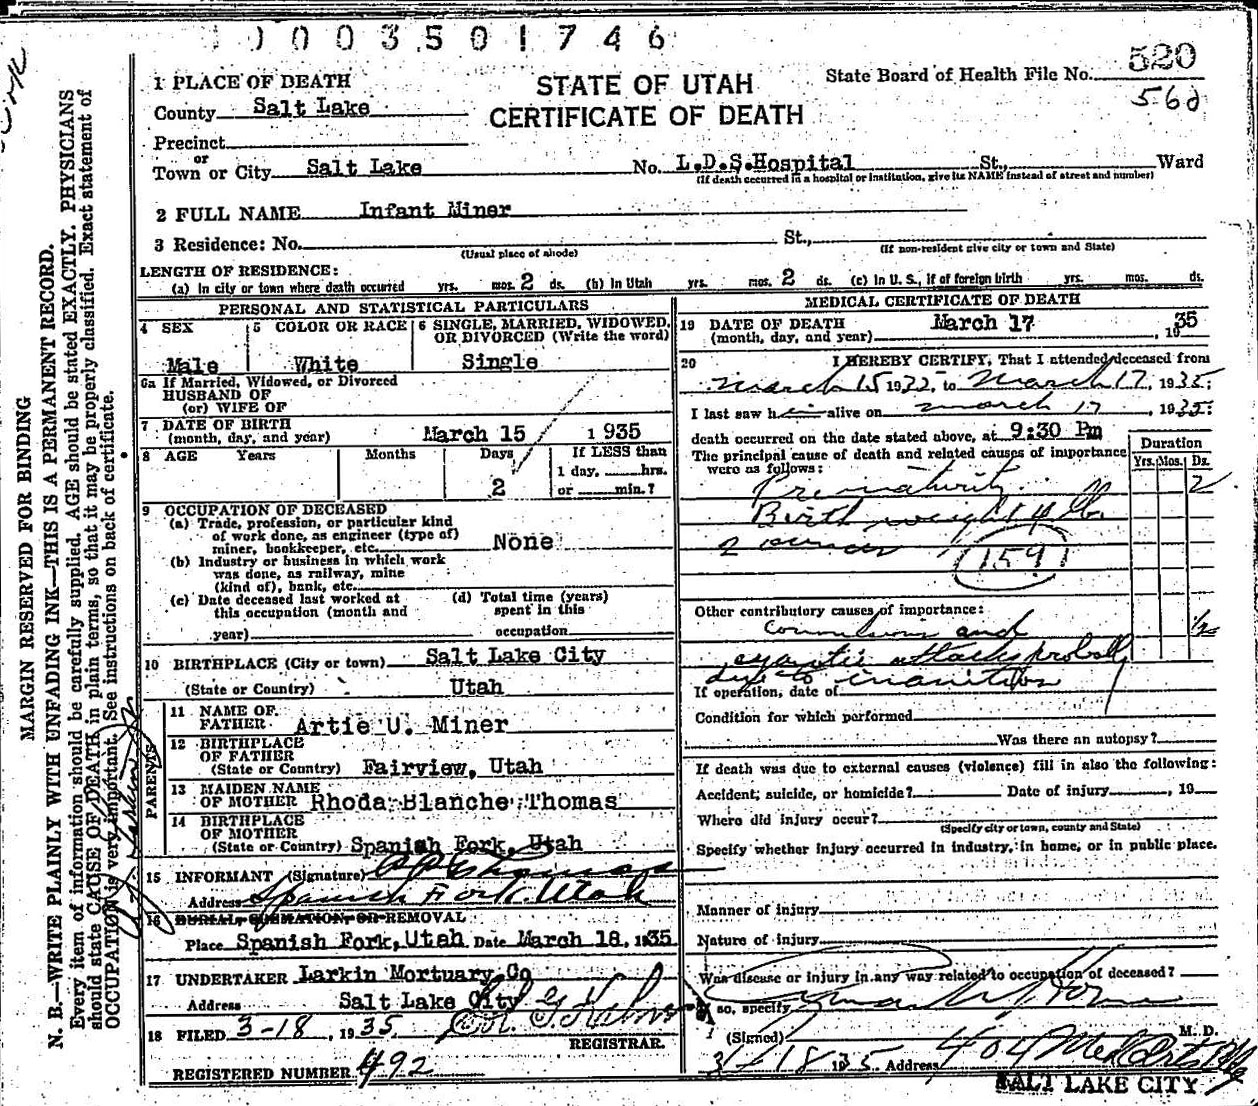 0003501746
1 PLACE OF DEATH
STATE OF UTAH
CERTIFICATE OF DEATH
State Board of Health File No. 520
560
County Salt Lake
Precinct
or
Town or City Salt Lake No. L.D.S.Hospital St., Ward
(If death occurred in a hospital or institution, give its NAME instead of street and number)
2 FULL NAME Infant Miner
3 Residence: No. St.,
(Usual place of abode) (If non-resident give city or town and State)
LENGTH OF RESIDENCE:
(a) In city or town where death occurred yrs. mos. 2 ds. (b) In Utah yrs. mos. 2 ds. (c) In U. S., if of foreign birth yrs. mos. ds.
PERSONAL AND STATISTICAL PARTICULARS
4 SEX
Male
5 COLOR OR RACE
White
6 SINGLE, MARRIED, WIDOWED,
OR DIVORCED (Write the word)
Single
6a If Married, Widowed, or Divorced
HUSBAND OF
(or) WIFE OF
7 DATE OF BIRTH
(month, day, and year) March 15 1935
8 AGE Years Months Days If LESS than
1 day, hrs.
2 or min.?
9 OCCUPATION OF DECEASED
(a) Trade, profession, or particular kind
of work done, as engineer (type of)
miner, bookkeeper, etc. None
(b) Industry or business in which work
was done, as railway, mine
(kind of), bank, etc.
(c) Date deceased last worked at
this occupation (month and
year)
(d) Total time (years)
spent in this
occupation
10 BIRTHPLACE (City or town) Salt Lake City
(State or Country) Utah
PARENTS
11 NAME OF
FATHER Artie U. Miner
12 BIRTHPLACE
OF FATHER
(State or Country) Fairview, Utah
13 MAIDEN NAME
OF MOTHER Rhoda Blanche Thomas
14 BIRTHPLACE
OF MOTHER
(State or Country) Spanish Fork, Utah
15 INFORMANT (Signature) Thomas
Address Spanish Fork Utah
16 BURIAL, CREMATION, OR REMOVAL
Place Spanish Fork, Utah Date March 18, 1935
17 UNDERTAKER Larkin Mortuary Co
Address Salt Lake City
18 FILED 3-18, 1935
REGISTRAR.
REGISTERED NUMBER 492
MEDICAL CERTIFICATE OF DEATH
19 DATE OF DEATH
(month, day, and year) March 17, 1935
20 I HEREBY CERTIFY, That I attended deceased from
March 15 1935, to March 17, 1935;
I last saw him alive on March 17, 1935;
death occurred on the date stated above, at 9:30 Pm
The principal cause of death and related causes of importance
were as follows:
Duration
Yrs. Mos. Ds.
Prematurity 2
Birth weight 4 lb.
2 ounces
159
Other contributory causes of importance:
Convulsions and 1/2
cyanotic attacks probably
due to inanition
If operation, date of
Condition for which performed
Was there an autopsy?
If death was due to external causes (violence) fill in also the following:
Accident, suicide, or homicide? Date of injury , 19
Where did injury occur?
(Specify city or town, county and State)
Specify whether injury occurred in industry, in home, or in public place.
Manner of injury
Nature of injury
Was disease or injury in any way related to occupation of deceased?
so, specify
(Signed) M. D.
3/18 1935 Address 404 Med Arts Bldg
SALT LAKE CITY
MARGIN RESERVED FOR BINDING
N. B.—WRITE PLAINLY WITH UNFADING INK—THIS IS A PERMANENT RECORD.
Every item of information should be carefully supplied. AGE should be stated EXACTLY. PHYSICIANS
should state CAUSE OF DEATH in plain terms, so that it may be properly classified. Exact statement of
OCCUPATION is very important. See instructions on back of certificate.